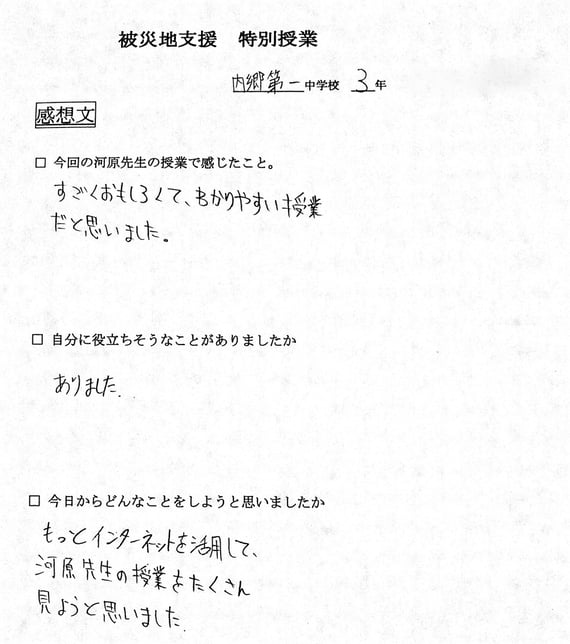 被災地支援　特別授業
内郷第一中学校 3年
感想文
□ 今回の河原先生の授業で感じたこと。
すごくおもしろくて、わかりやすい授業
だと思いました。
□ 自分に役立ちそうなことがありましたか
ありました.
□ 今日からどんなことをしようと思いましたか
もっとインターネットを活用して、
河原先生の授業をたくさん
見ようと思いました.